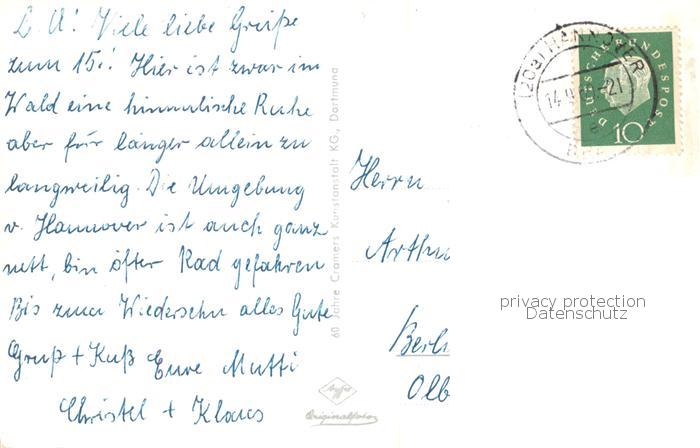 L. A! Viele liebe Grüße
zum 15.! Hier ist zwar im
Wald eine himmlische Ruhe
aber für länger allein zu
langweilig. Die Umgebung
v. Hannover ist auch ganz
nett, bin öfter Rad gefahren
Bis zum Wiedersehn alles Gute
Gruß + Kuß Eure Mutti
Christel + Klaus
60 Jahre Cramers Kunstanstalt KG., Dortmund
Agfa
Originalfoto
(20a) HANNOVER
14.9. -21
DEUTSCHE BUNDESPOST
10
Herrn
Arthu
Berli
Olb
privacy protection
Datenschutz